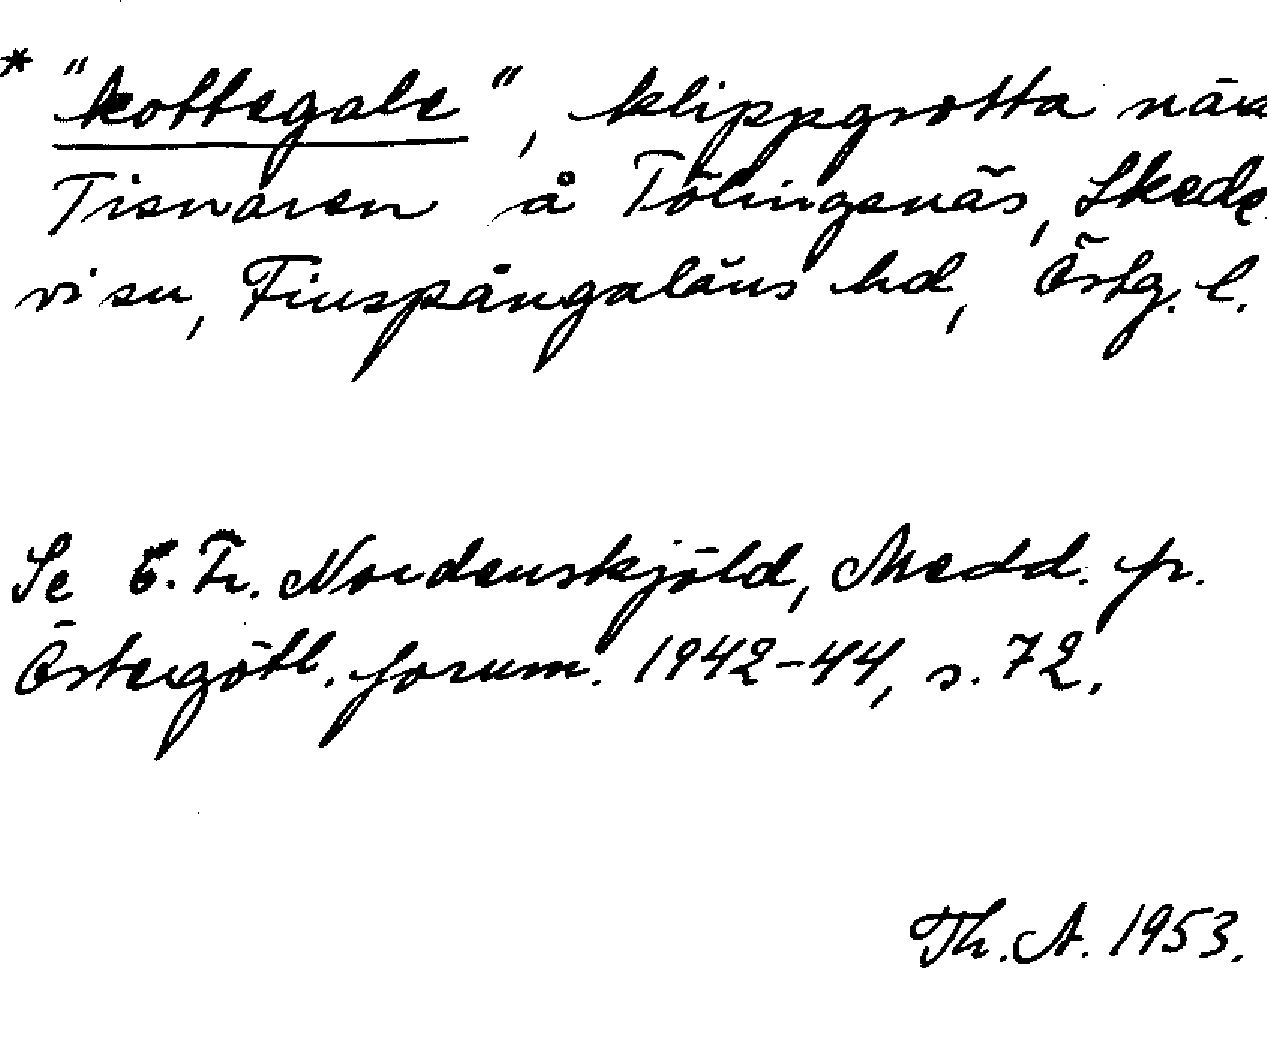 * "kottegale", klippgrotta när
Tisnaren å Tölingsnäs, Skede-
vi sn, Finspångaläns hd, Östg. l.
Se C. Fr. Nordenskjöld, Medd. fr.
Östergötl. fornm. 1942-44, s. 72.
Th. A. 1953.